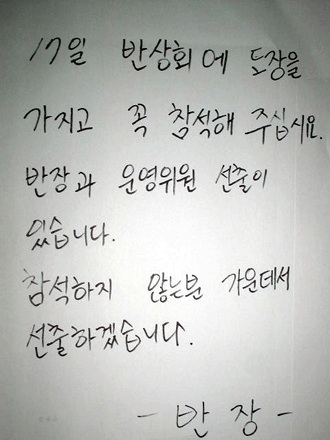 17일 반상회에 도장을
가지고 꼭 참석해 주십시요.
반장과 운영위원 선출이
있습니다.
참석하지 않는분 가운데서
선출하겠습니다.
- 반 장 -